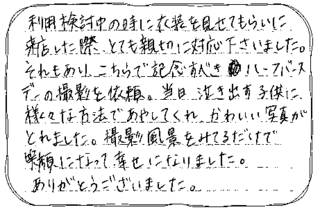 利用検討中の時に衣装を見せてもらいに
来店した際、とても親切に対応下さいました。
それもあり、こちらで記念すべきハーフバース
デーの撮影を依頼。当日泣き出す子供に
様々な方法であやしてくれ、かわいい写真が
とれました。撮影風景をみてるだけで
笑顔になって幸せになりました。
ありがとうございました。